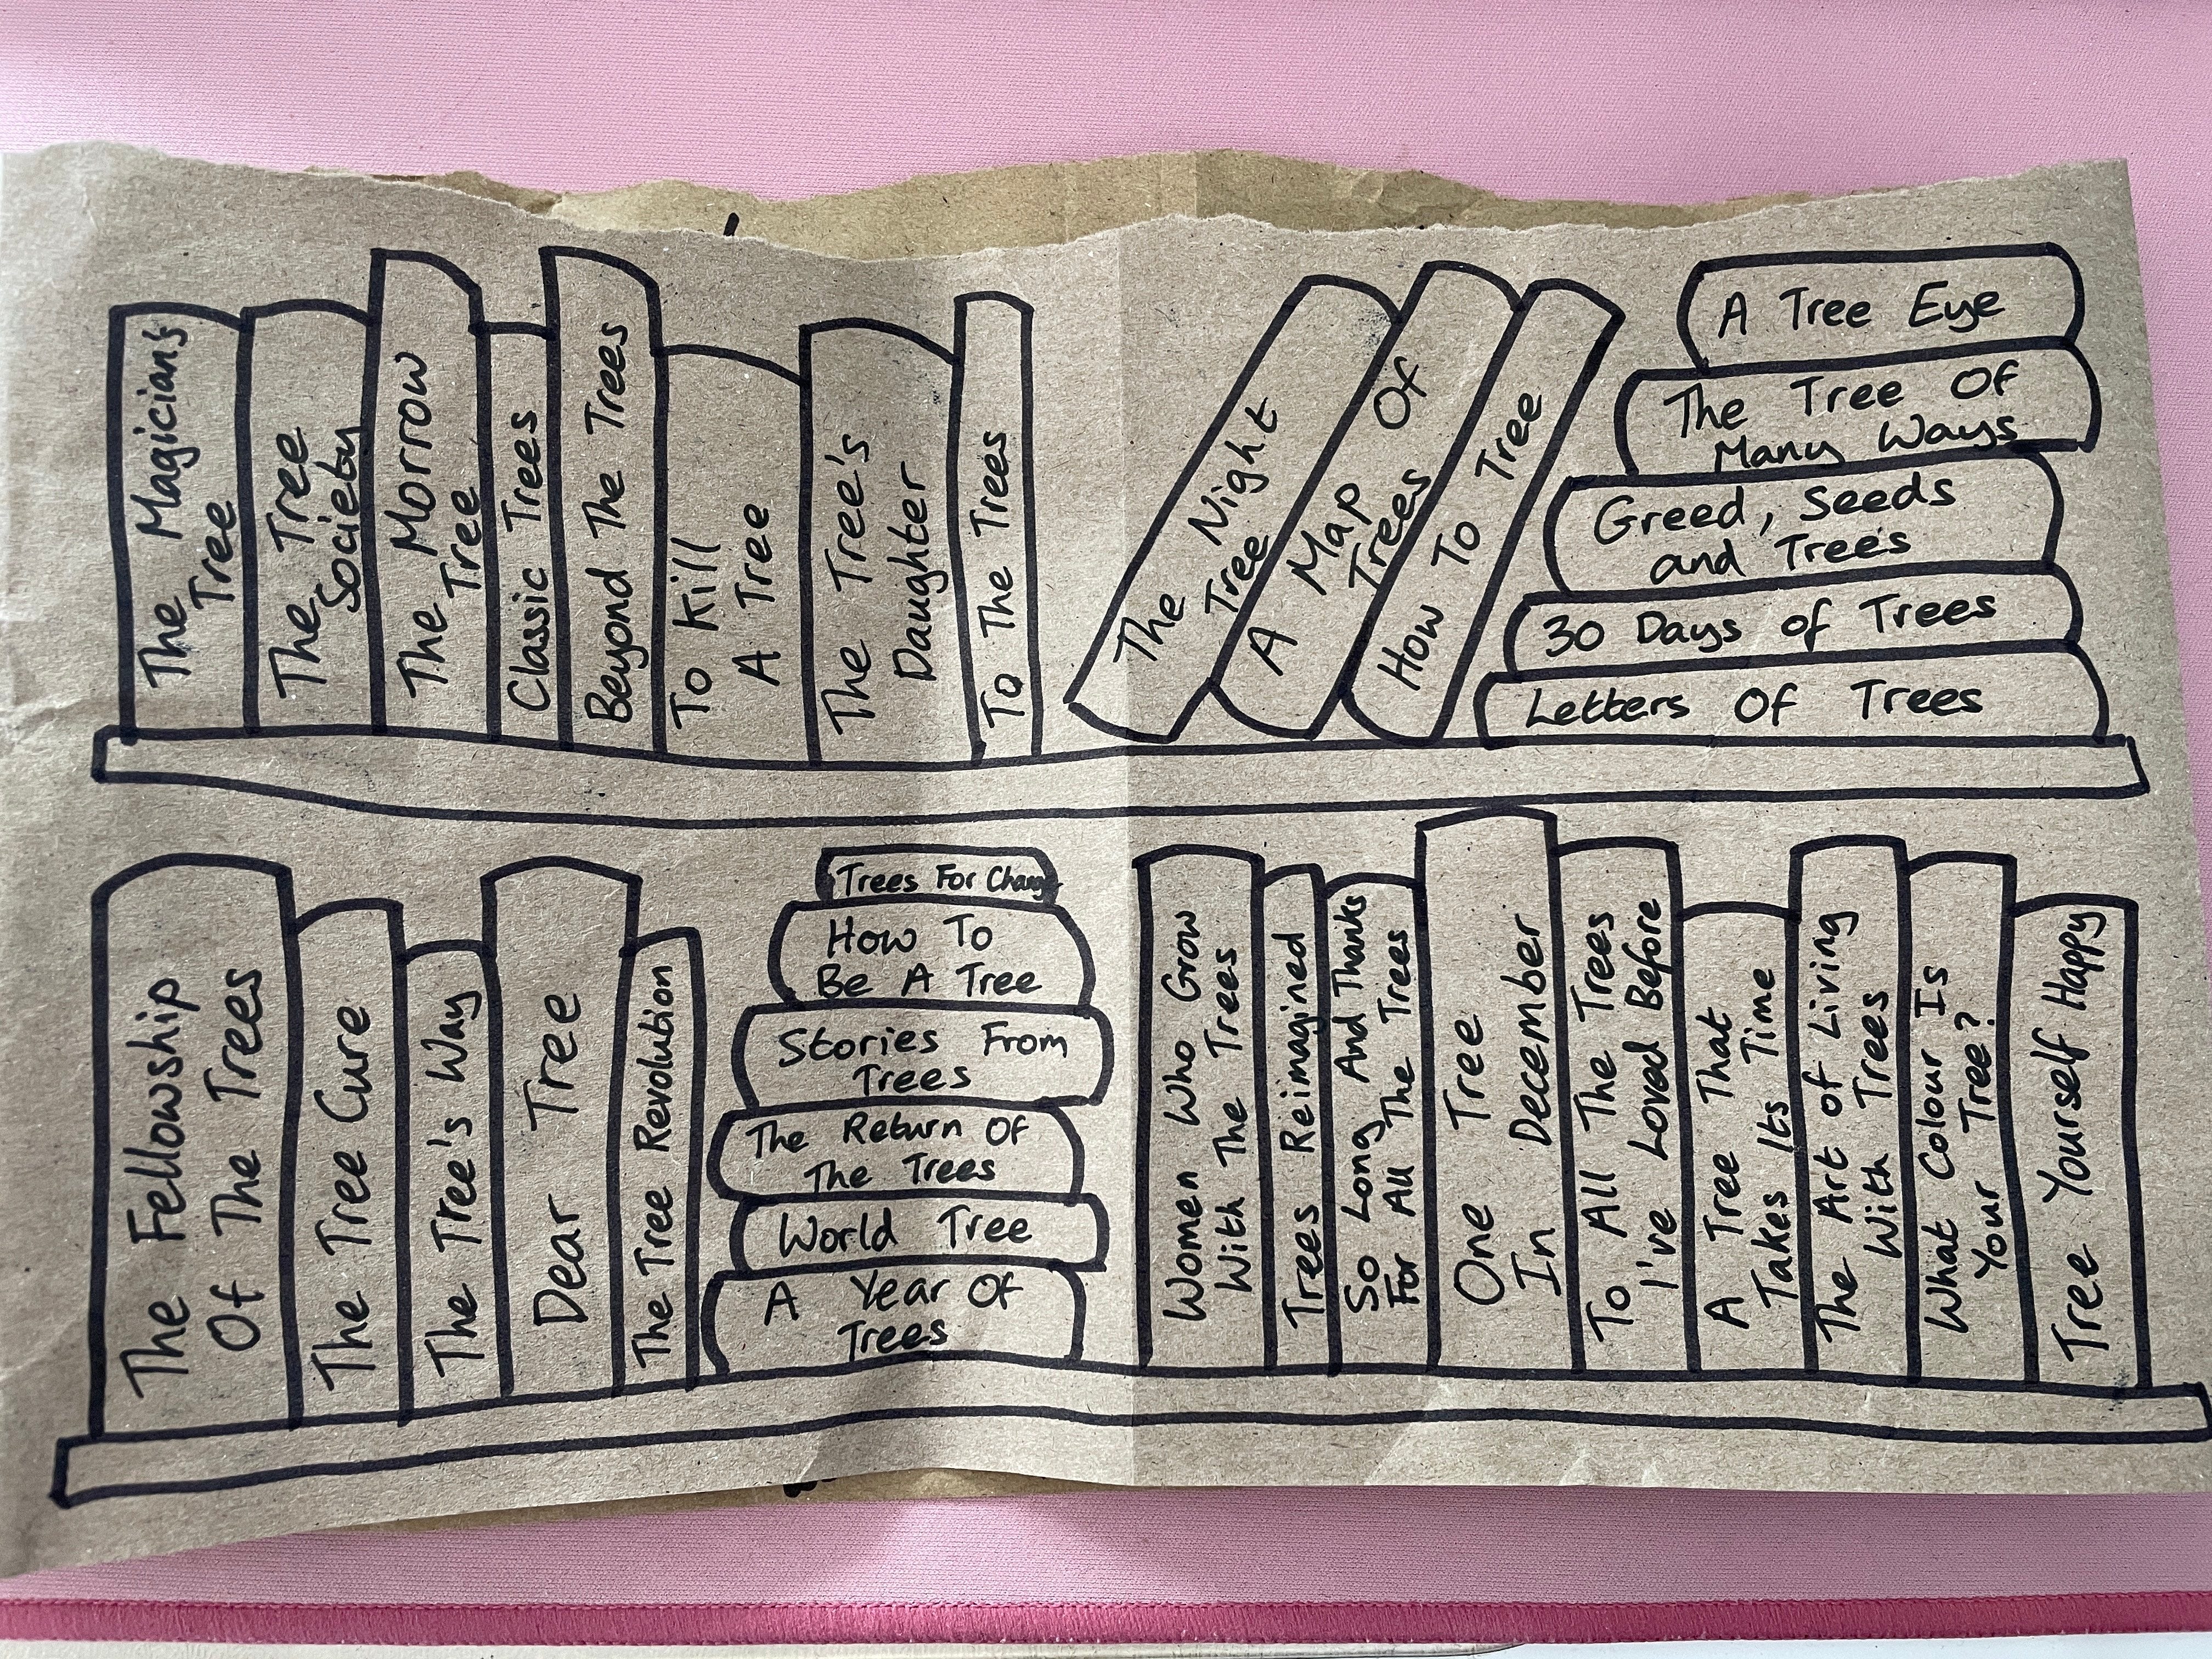 The Magician's
Tree
The Tree
Society
The Morrow
Tree
Classic Trees
Beyond The Trees
To Kill
A Tree
The Tree's
Daughter
To The Trees
The Night
Tree
A Map Of
Trees
How To Tree
A Tree Eye
The Tree Of
Many Ways
Greed, Seeds
and Trees
30 Days of Trees
Letters Of Trees
The Fellowship
Of The Trees
The Tree Cure
The Tree's Way
Dear Tree
The Tree Revolution
Trees For Change
How To
Be A Tree
Stories From
Trees
The Return Of
The Trees
World Tree
A Year Of
Trees
Women Who Grow
With The Trees
Trees Reimagined
So Long And Thanks
For All The Trees
One Tree
In December
To All The Trees
I've Loved Before
A Tree That
Takes Its Time
The Art of Living
With Trees
What Colour Is
Your Tree?
Tree Yourself Happy